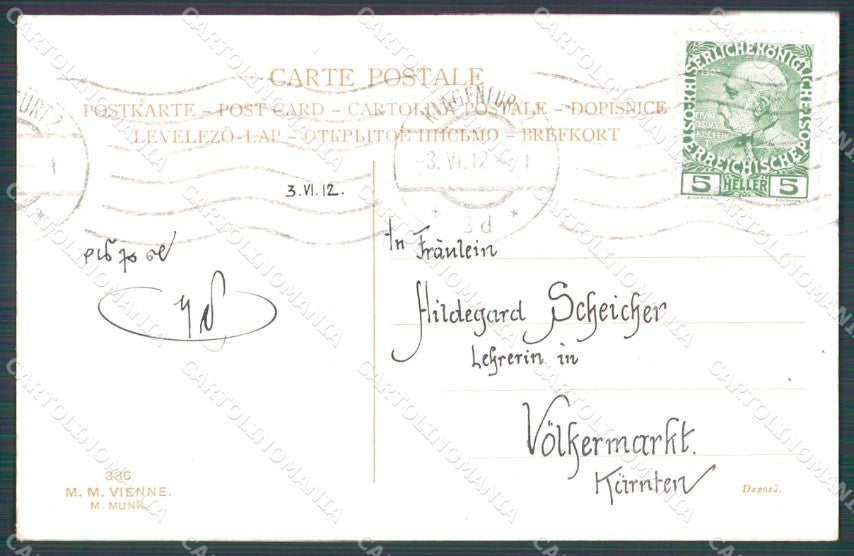 CARTE POSTALE
POSTKARTE – POST CARD – CARTOLINA POSTALE – DOPISNICE
LEVELEZÖ-LAP – ОТКРЫТОЕ ПИСЬМО – BREFKORT
KLAGENFURT
3.VI.12
3d
KAISERLICHE KÖNIGLICHE ÖSTERREICHISCHE POST
5 HELLER 5
3.VI.12.
An Fräulein
Hildegard Scheicher
Lehrerin in
Völkermarkt.
Kärnten
336
M. M. VIENNE.
M. MUNK
Deposé.
CARTOLINOMANIA